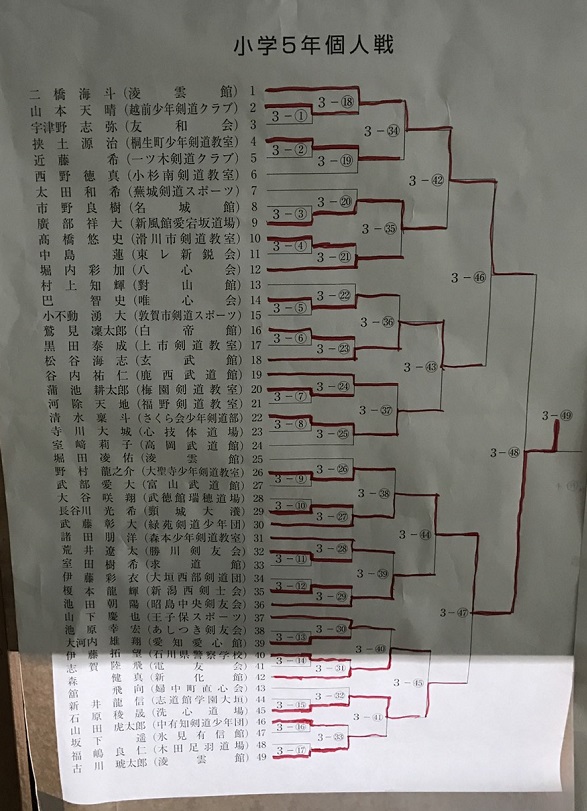 小学5年個人戦
二橋海斗(淩雲館) 1
山本天晴(越前少年剣道クラブ) 2
宇津野志弥(友和会) 3
挟土源治(桐生町少年剣道教室) 4
近藤希(一ツ木剣道クラブ) 5
西野徳真(小杉南剣道教室) 6
太田和希(蕪城剣道スポーツ) 7
市野良樹(名城館) 8
廣部祥大(新風館愛宕坂道場) 9
髙橋悠史(滑川市剣道教室) 10
中島蓮(東レ新鋭会) 11
堀内彩加(八心会) 12
村上知輝(對山館) 13
巴智史(唯心会) 14
小不動湧大(敦賀市剣道スポーツ) 15
鷲見凜太郎(白帝館) 16
黒田泰成(上市剣道教室) 17
松谷海志(玄武館) 18
谷内祐仁(鹿西武道館) 19
蒲池耕太郎(梅園剣道教室) 20
河除天地(福野剣道教室) 21
清水粟斗(さくら会少年剣道部) 22
寺川大城(心技体道場) 23
室﨑莉子(高岡武道館) 24
堀田凌佑(淩雲館) 25
野村龍之介(大聖寺少年剣道教室) 26
武部愛大(富山武道館) 27
大谷咲翔(武徳館瑞穂道場) 28
長谷川光希(頸城大瀁) 29
武藤彰大(緑苑剣道少年団) 30
諸田朋洋(森本少年剣道教室) 31
荒井遼太(勝川剣友会) 32
室田樹希(求道館) 33
伊藤彩衣(大垣西部剣道団) 34
榎本龍輝(新潟西剣士会) 35
池田朝陽(昭島中央剣友会) 36
山下慶也(王子保スポーツ) 37
池原幸宏(あしつき剣友会) 38
大河内雄翔(愛知愛心館) 39
伊藤拓望(石川県警察学校) 40
志賀陸飛(電友会) 41
森健真(新化館) 42
館飛向(婦中町直心会) 43
新井龍信(志道館学園大垣) 44
石原稜晟(洗心道場) 45
山田虎太郎(中有知剣道少年団) 46
坂下遥(氷見有信館) 47
福嶋良仁(木田足羽道場) 48
古川琥太郎(淩雲館) 49
3-①
3-②
3-③
3-④
3-⑤
3-⑥
3-⑦
3-⑧
3-⑨
3-⑩
3-⑪
3-⑫
3-⑬
3-⑭
3-⑮
3-⑯
3-⑰
3-⑱
3-⑲
3-⑳
3-㉑
3-㉒
3-㉓
3-㉔
3-㉕
3-㉖
3-㉗
3-㉘
3-㉙
3-㉚
3-㉛
3-㉜
3-㉝
3-㉞
3-㉟
3-㊱
3-㊲
3-㊳
3-㊴
3-㊵
3-㊶
3-㊷
3-㊸
3-㊹
3-㊺
3-㊻
3-㊼
3-㊽
3-㊾